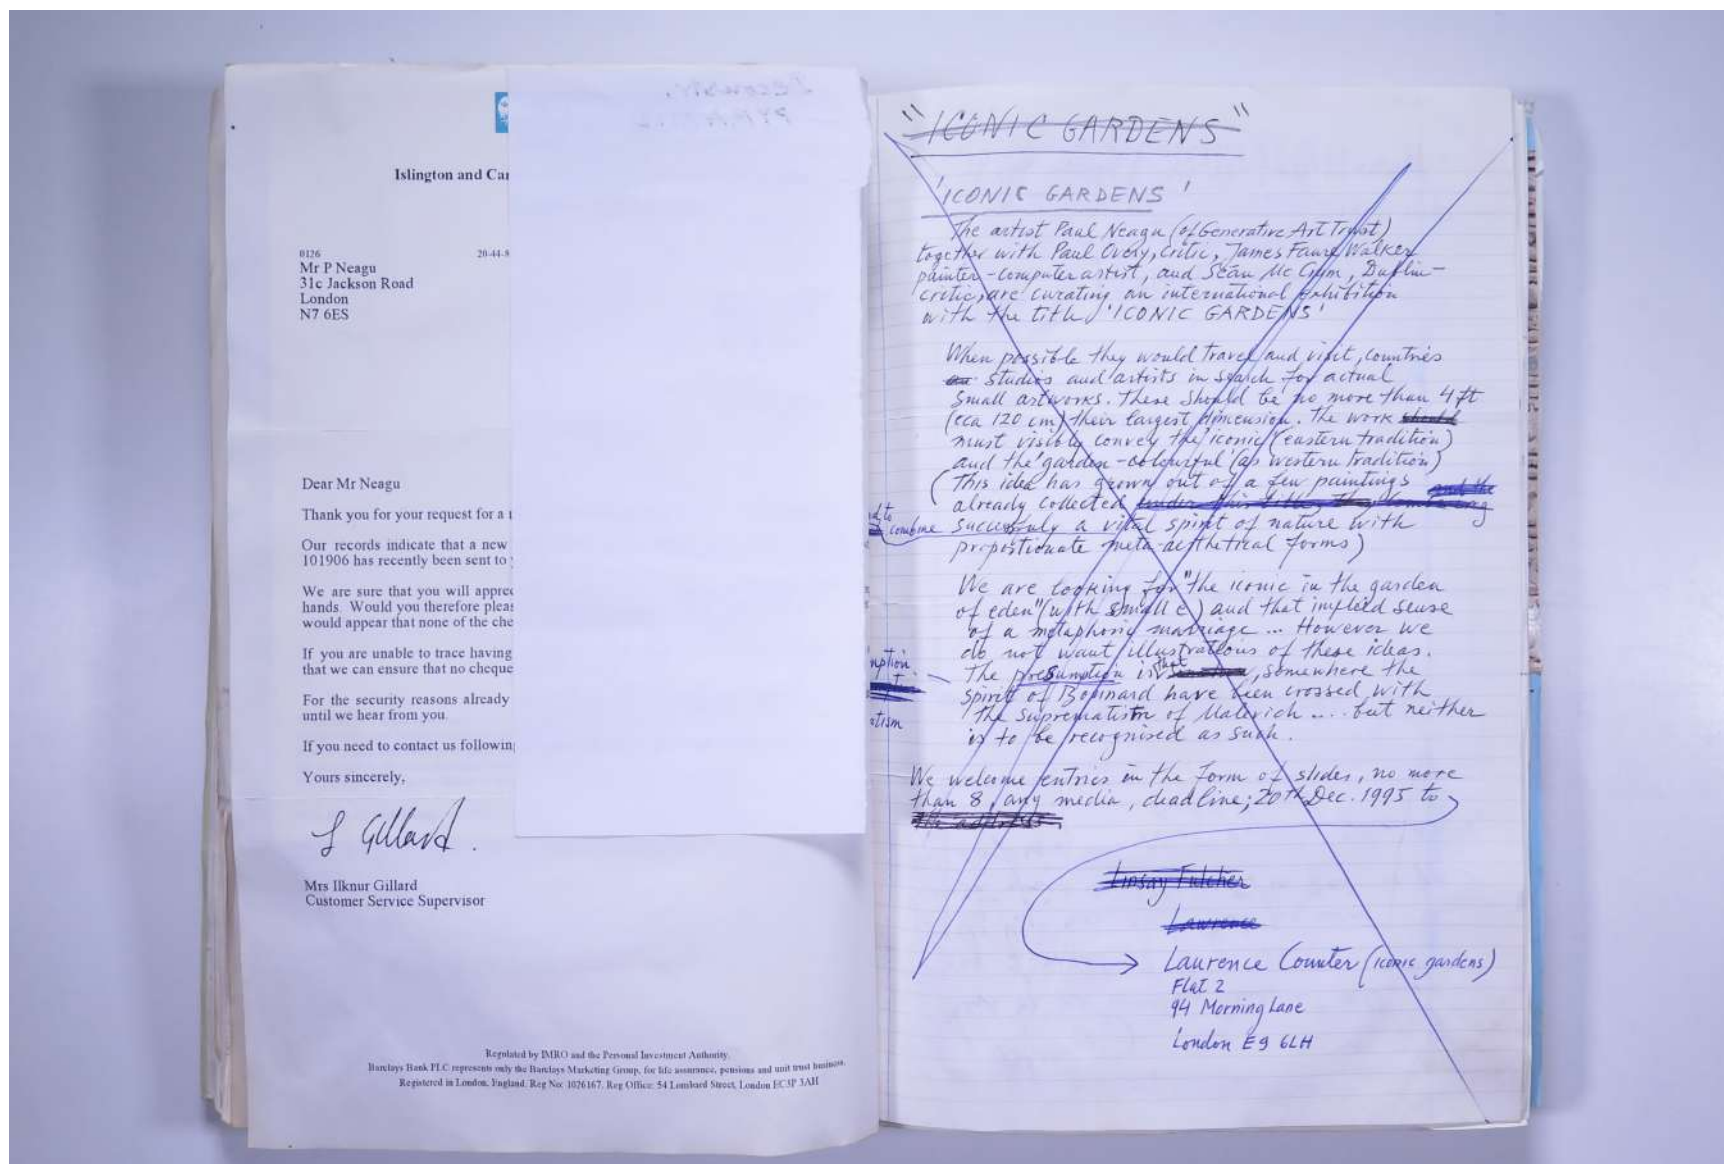 Islington and Ca
0126
20-44-
Mr P Neagu
31c Jackson Road
London
N7 6ES
Dear Mr Neagu
Thank you for your request for a
Our records indicate that a new
101906 has recently been sent to
We are sure that you will apprec
hands. Would you therefore pleas
would appear that none of the che
If you are unable to trace having
that we can ensure that no cheque
For the security reasons already
until we hear from you.
If you need to contact us following
Yours sincerely,
Gillard.
Mrs Ilknur Gillard
Customer Service Supervisor
Regulated by IMRO and the Personal Investment Authority.
Barclays Bank PLC represents only the Barclays Marketing Group, for life assurance, pensions and unit trust business.
Registered in London, England. Reg No: 1026167. Reg Office: 54 Lombard Street, London EC3P 3AH
"ICONIC GARDENS"
'ICONIC GARDENS'
The artist Paul Neagu (of Generative Art Trust)
together with Paul Overy, critic, James Faure Walker
painter-computer artist, and Seán Mc Crum, Dublin-
critic, are curating an international exhibition
with the title 'ICONIC GARDENS'
When possible they would travel and visit, countries
studios and artists in search for actual
small artworks. These should be no more than 4 ft
(cca 120 cm) their largest dimension. The work should
must visibly convey the 'iconic' (eastern tradition)
and the 'garden-colourful' (as western tradition)
(This idea has grown out of a few paintings and the
already collected under this title,
d to
combine succesfuly a vital spirit of nature with
propostionate meta-aesthetical forms)
We are looking for "the iconic in the garden
of eden" (with small e) and that implied sense
of a metaphoric marriage ... However we
do not want illustrations of these ideas.
mption
The presumption is that, somewhere the
spirit of Bonnard have been crossed with
atism
the suprematism of Malevich .... but neither
is to be recognised as such.
We welcome entries in the form of slides, no more
than 8, any media, deadline; 20th Dec. 1995 to
the address,
Linsay Fulcher
Lawrence
Laurence Counter (iconic gardens)
Flat 2
94 Morning Lane
London E9 6LH